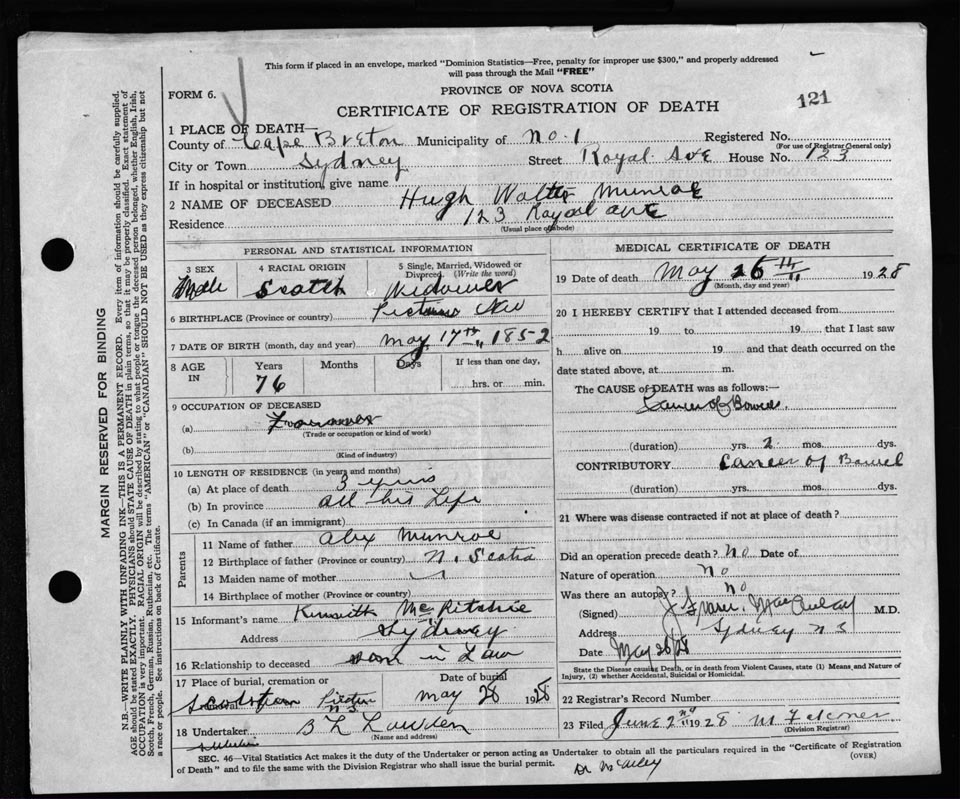 This form if placed in an envelope, marked "Dominion Statistics—Free, penalty for improper use $300," and properly addressed
will pass through the Mail "FREE"
PROVINCE OF NOVA SCOTIA
FORM 6.
CERTIFICATE OF REGISTRATION OF DEATH
121
1 PLACE OF DEATH—
County of Cape Breton Municipality of No. 1 Registered No.
(For use of Registrar General only)
City or Town Sydney Street Royal Ave House No. 123
If in hospital or institution, give name
2 NAME OF DECEASED Hugh Walter Munroe
Residence 123 Royal ave
(Usual place of abode)
PERSONAL AND STATISTICAL INFORMATION
3 SEX 4 RACIAL ORIGIN 5 Single, Married, Widowed or
Divorced. (Write the word)
Male Scotch Widower
6 BIRTHPLACE (Province or country) Pictou
7 DATE OF BIRTH (month, day and year) May 17th 1852
8 AGE IN Years Months Days If less than one day,
76 hrs. or min.
9 OCCUPATION OF DECEASED
(a)
(Trade or occupation or kind of work)
(b)
(Kind of industry)
10 LENGTH OF RESIDENCE (in years and months)
(a) At place of death 3 years
(b) In province all his Life
(c) In Canada (if an immigrant)
Parents
11 Name of father Alex Munroe
12 Birthplace of father (Province or country) N. Scotia
13 Maiden name of mother
14 Birthplace of mother (Province or country)
15 Informant's name Kenneth McRitchie
Address Sydney
16 Relationship to deceased son in Law
17 Place of burial, cremation or removal Date of burial
Pictou N S May 28 1928
18 Undertaker B L Lowden
(Name and address)
MEDICAL CERTIFICATE OF DEATH
19 Date of death May 26th 1928
(Month, day and year)
20 I HEREBY CERTIFY that I attended deceased from
19 to 19 that I last saw
h alive on 19 and that death occurred on the
date stated above, at m.
The CAUSE OF DEATH was as follows:—
Cancer of Bowel.
(duration) yrs. 2 mos. dys.
CONTRIBUTORY Cancer of Bowel
(duration) yrs. mos. dys.
21 Where was disease contracted if not at place of death?
Did an operation precede death? No Date of
Nature of operation No
Was there an autopsy? No
(Signed) J Fraser MacAulay M.D.
Address Sydney N S
Date May 26/28
State the Disease causing Death, or in death from Violent Causes, state (1) Means, and Nature of
Injury, (2) whether Accidental, Suicidal or Homicidal.
22 Registrar's Record Number
23 Filed June 2nd 1928 M Falconer
(Division Registrar)
SEC. 46—Vital Statistics Act makes it the duty of the Undertaker or person acting as Undertaker to obtain all the particulars required in the "Certificate of Registration
of Death" and to file the same with the Division Registrar who shall issue the burial permit.
(OVER)
MARGIN RESERVED FOR BINDING
N.B.—WRITE PLAINLY WITH UNFADING INK—THIS IS A PERMANENT RECORD. Every item of information should be carefully supplied.
AGE should be stated EXACTLY. PHYSICIANS should STATE CAUSE OF DEATH in plain terms, so that it may be properly classified. Exact statement of
OCCUPATION is very important. RACIAL ORIGIN will be described by stating to what people or tongue the deceased person belonged, whether English, Irish,
Scotch, French, German, Russian, Ruthenian, etc. The terms "AMERICAN" or "CANADIAN" SHOULD NOT BE USED as they express citizenship but not
a race or people. See instructions on back of Certificate.